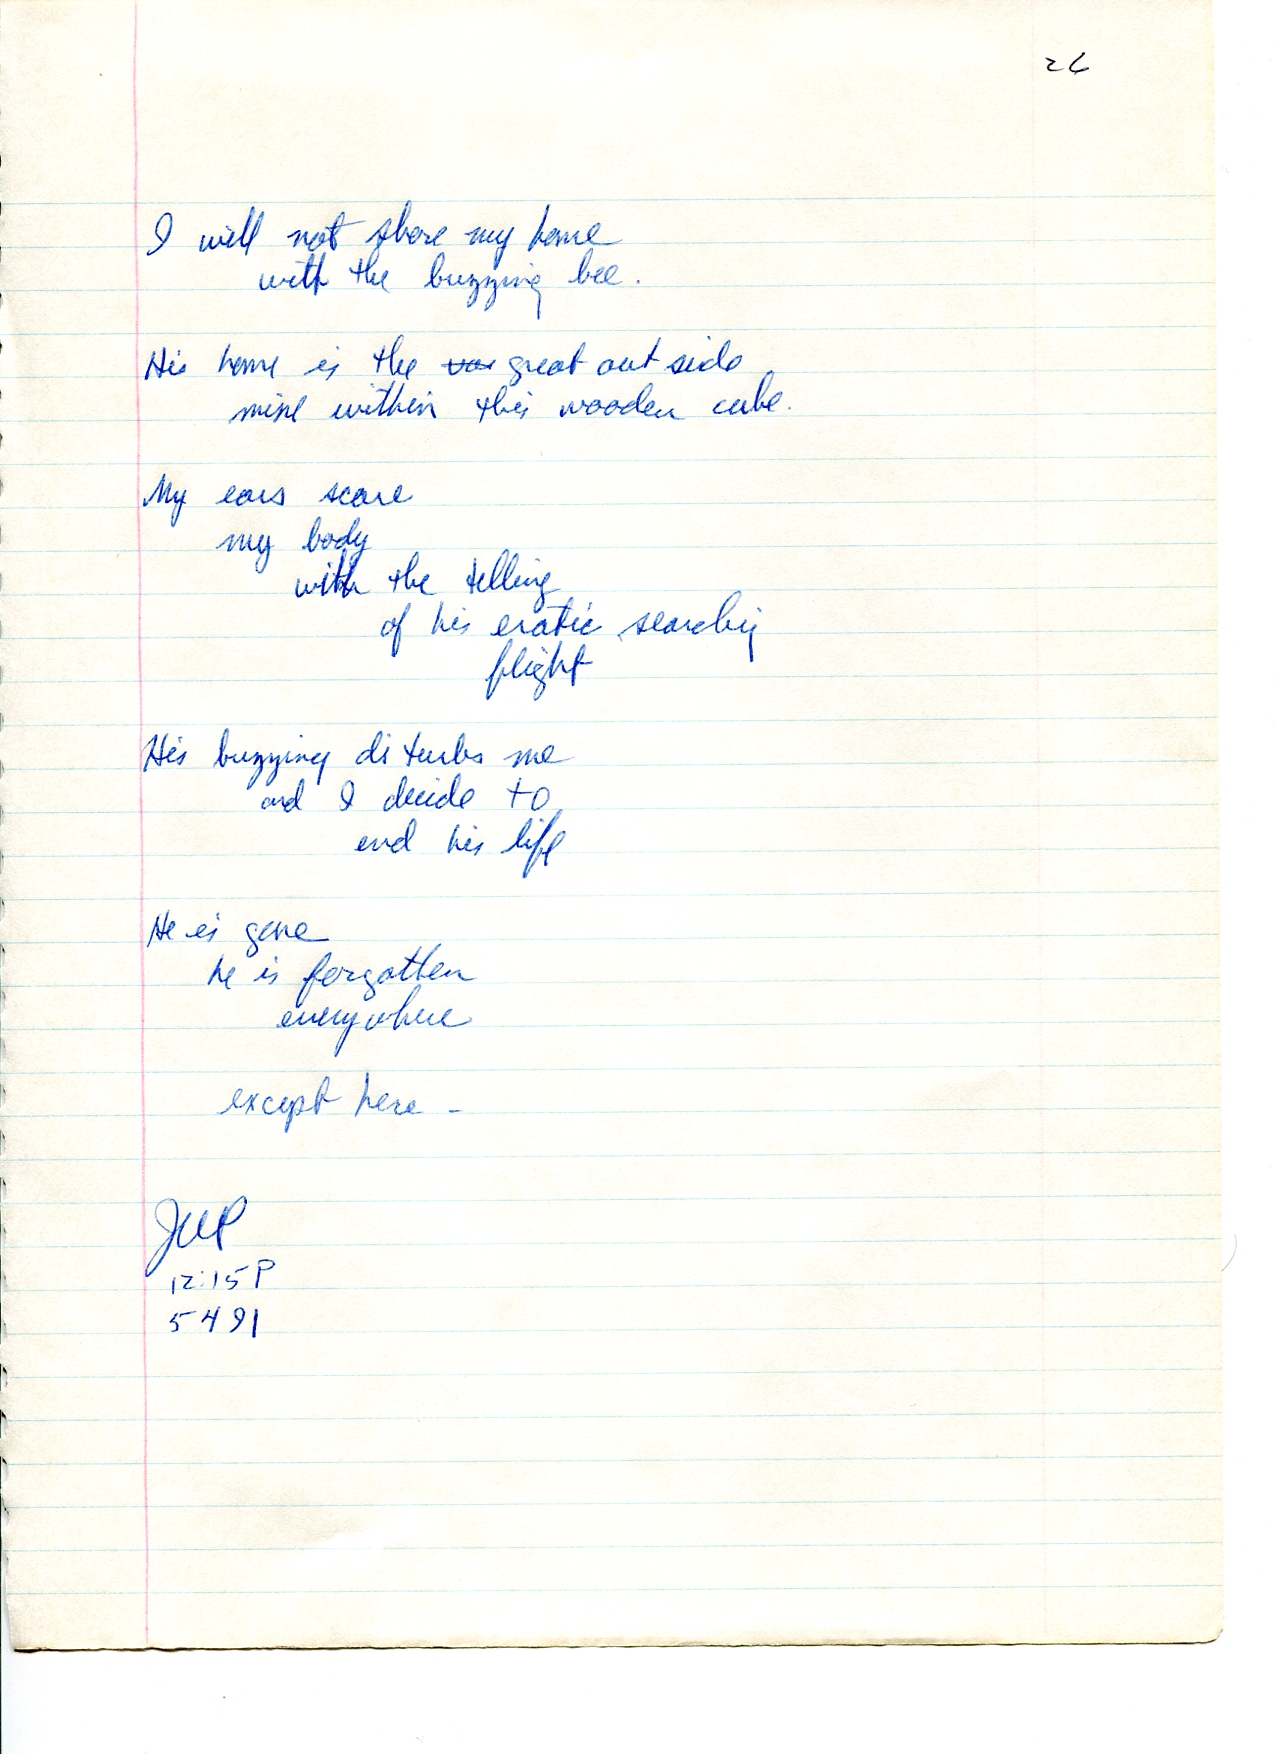 26
I will not share my home
with the buzzing bee.
His home is the great outside
mine within this wooden cube.
My ears scare
my body
with the telling
of his eratic searching
flight
His buzzing disturbs me
and I decide to
end his life
He is gone
he is forgotten
everywhere
except here -
12:15P
5491